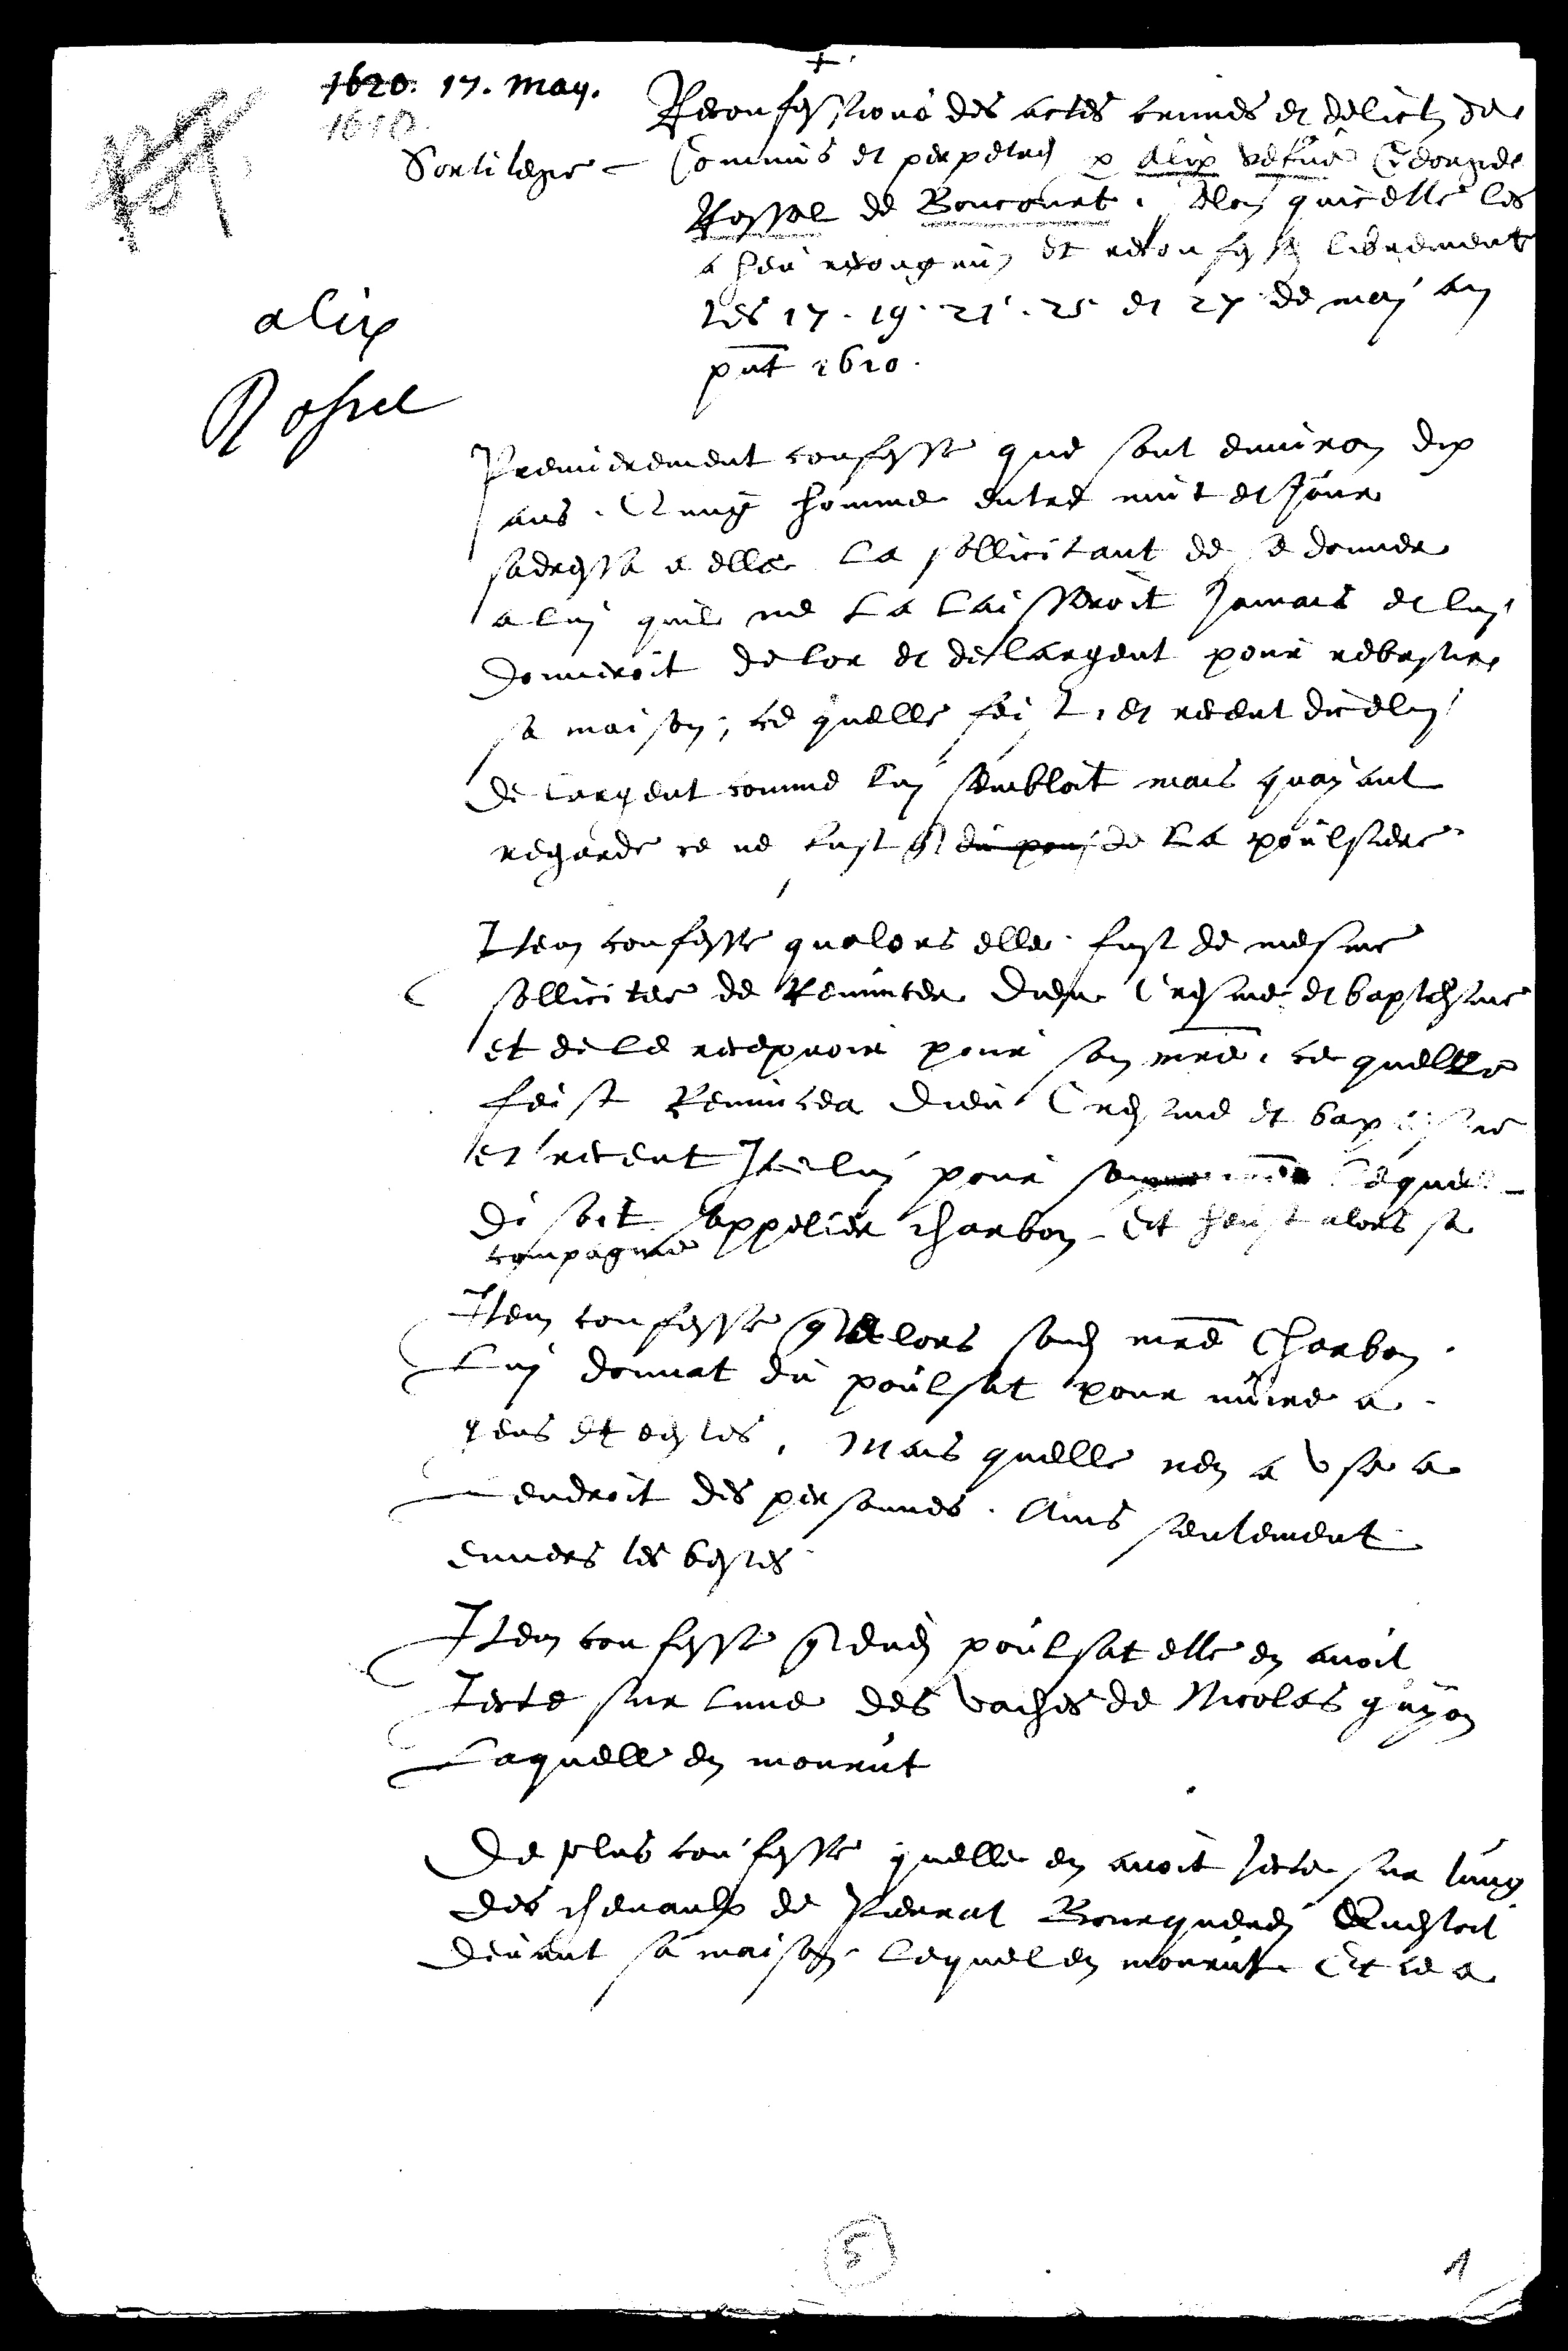 1620. 17. May.
1610.
Sortilege
alix
Rossel
Reconfessions des actes crimes et delictz de
Commis et perpetrez p alix vefue George
Rossel de Boncourt. selon quicelle les
a heu recongnuz et reconfessez librement
les 17. 19. 21. 25 et 27 de may an
pnt 1610.
Premierement confesse que sont enuiron dix
ans. Qung homme entre nuit et Jour
sadressa a elle la sollicitant de se donner
a luy quil ne la laisseroit Jamais et luy
donneroit de lor et de largent pour rebastir
sa maison, ce quelle feist, et receut diceluy
de largent comme luy sembloit mais quayant
regarde ce ne fust q de la poulsiere
Item confesse qualors elle fust de mesme
sollicitee de Renuncer Dieu Cresme et baptesme
et de le recepuoir pour son mre. ce quelle
feist Renuncea Dieu Cresme et baptesme
et receut Iceluy pour son mre lequel
disoit sappeller charbon. Et heust alors sa
compagnie
Item confesse qualors sond mre Charbon
Luy donnat du poulsat pour nuire a
gens et bestes, Mais quelle nen a vse a
lendroit des personnes. Ains seulement
enuers les bestes
Item confesse q dud poulsat elle en auoit
Jecte sur lune des vaches de Nicolas guyon
Laquelle en mourut
De plus confesse quelle en auoit Jecte sur lung
des cheuaulx de Pierrat Bourquard Questoit
deuant sa maison lequel en mourut Et ce a
5
1